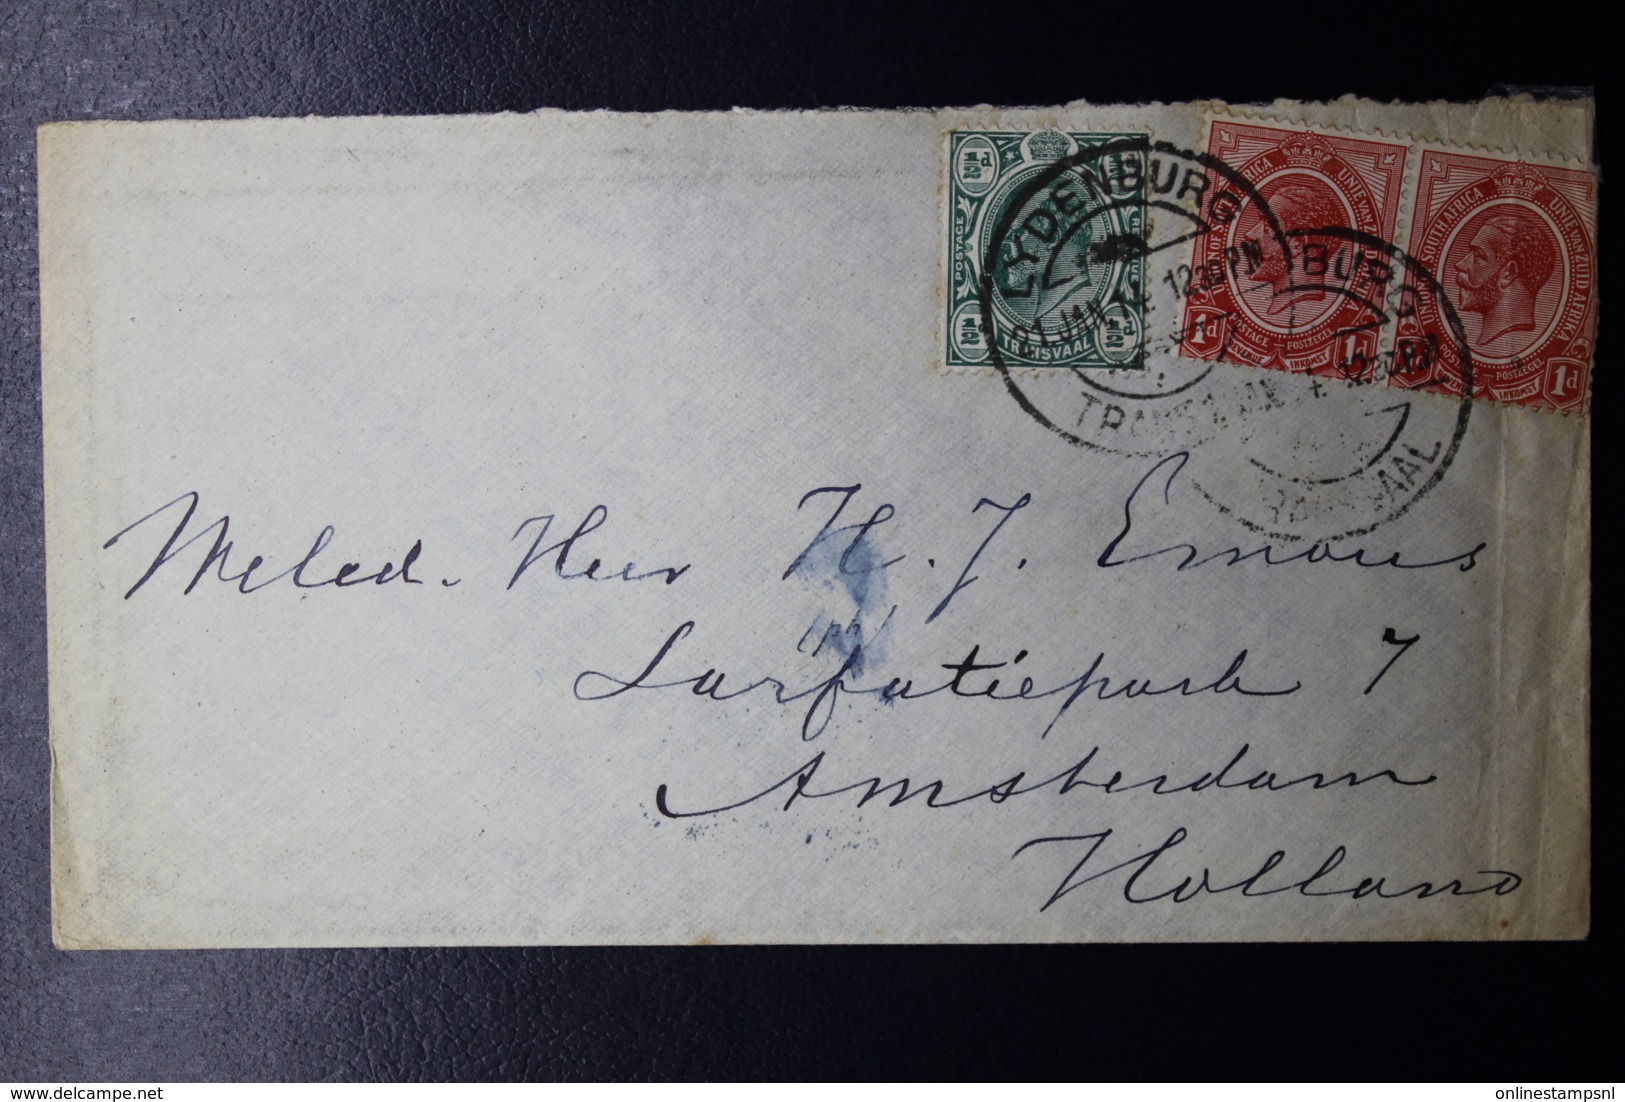 ½d ½d
POSTAGE
½d ½d
TRANSVAAL
UNION OF SOUTH AFRICA UNIE VAN ZUID AFRIKA
1d POSTAGE POSTZEGEL 1d
REVENUE INKOMST
UNION OF SOUTH AFRICA UNIE VAN ZUID AFRIKA
POSTZEGEL 1d
REVENUE INKOMST
LYDENBURG
21 JAN. 14 12.30 PM
TRANSVAAL
BURG
12.30 PM
TRANSVAAL
Weled. Heer H. J. Emous
Sarfatiepark 7
Amsterdam
Holland
delcampe.net
onlinestampsnl